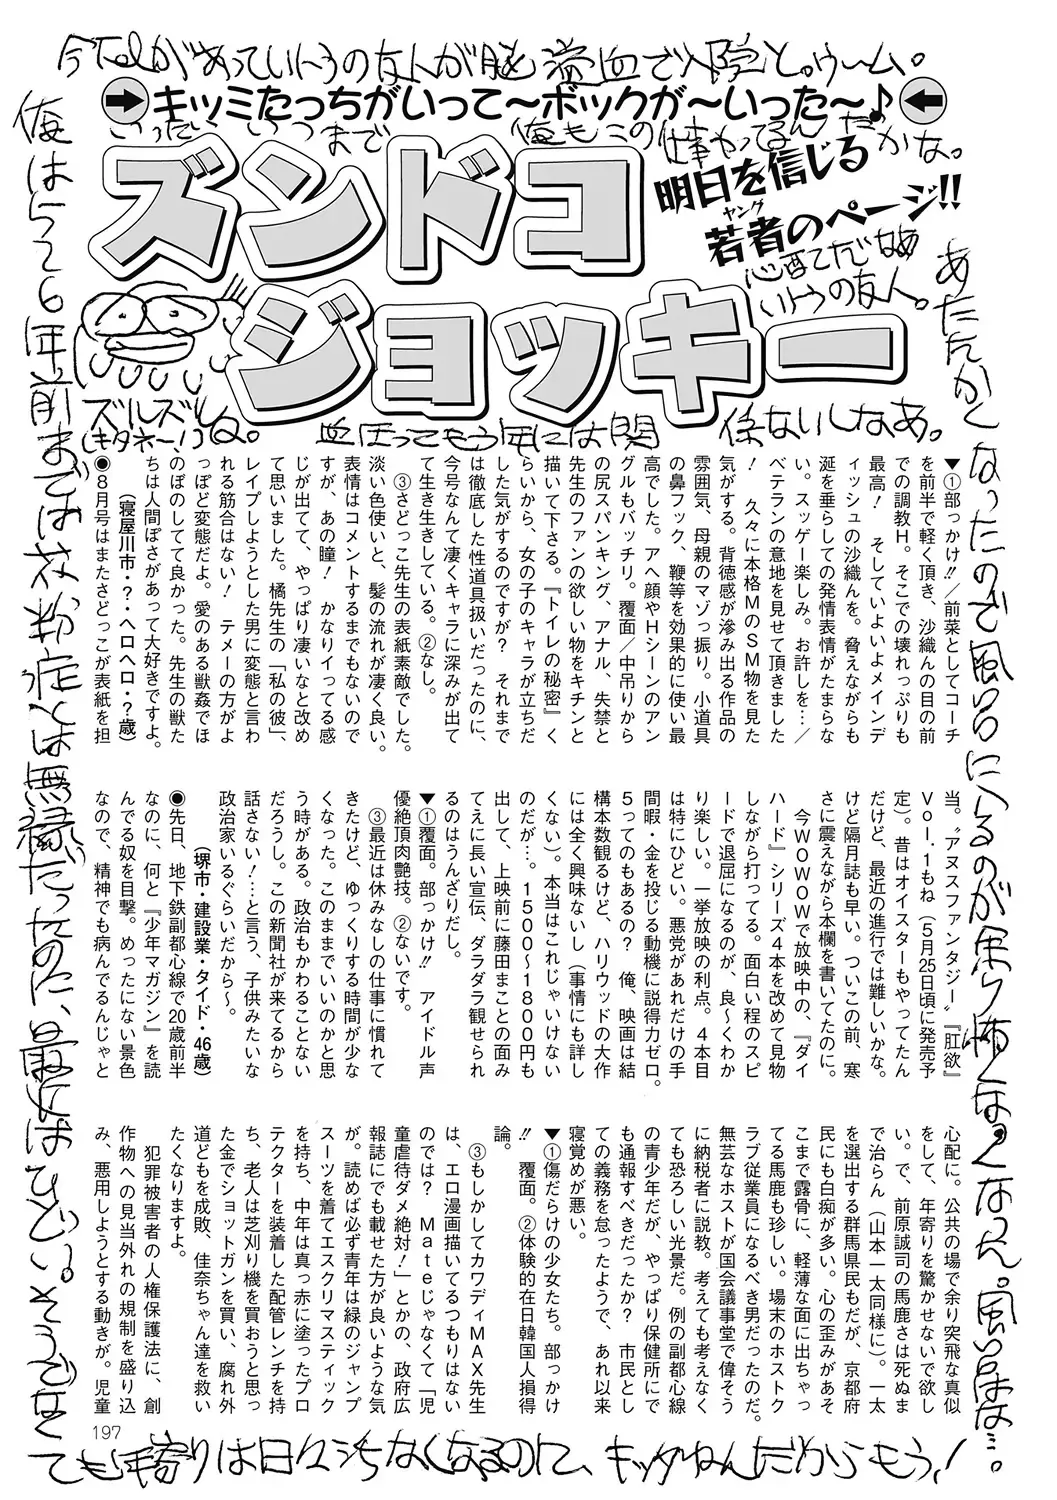 今Telがあっていとうの友人が脳溢血で入院と。ウーム。
キッミたっちがいって〜ボックが〜いった〜♪
いったいいつまで俺もこの仕事やってるんだかな。
ズンドコ
ジョッキー
明日を信じる
若者のページ!!
ヤング
心配だなあ
いとうの友人。
ズルズルQ。
(キタネー!)
血圧ってもう年には関係ないしなあ。
俺は5〜6年前までは花粉症とは無縁だったのに、最近はひどい。そうでなく
ても年寄りは日々うちなくなるのに、キッタねんだからもう!
あたたかくなったので風呂に入るのが余り怖くなくなんん。風呂は…。
▼①部っかけ!!／前菜としてコーチ
を前半で軽く頂き、沙織んの目の前
での調教H。そこでの壊れっぷりも
最高!　そしていよいよメインデ
ィッシュの沙織んを。脅えながらも
涎を垂らしての発情表情がたまらな
い。スッゲー楽しみ。お許しを…／
ベテランの意地を見せて頂きました
!　久々に本格MのSM物を見た
気がする。背徳感が滲み出る作品の
雰囲気、母親のマゾっ振り。小道具
の鼻フック、鞭等を効果的に使い最
高でした。アヘ顔やHシーンのアン
グルもバッチリ。覆面／中吊りから
の尻スパンキング、アナル、失禁と
先生のファンの欲しい物をキチンと
描いて下さる。『トイレの秘密』く
らいから、女の子のキャラが立ちだ
した気がするのですが?　それまで
は徹底した性道具扱いだったのに、
今号なんて凄くキャラに深みが出て
て生き生きしている。②なし。
　③さどっこ先生の表紙素敵でした。
淡い色使いと、髪の流れが凄く良い。
表情はコメントするまでもないので
すが、あの瞳!　かなりイってる感
じが出てて、やっぱり凄いなと改め
て思いました。橘先生の「私の彼」、
レイプしようとした男に変態と言わ
れる筋合はない!　テメーの方がよ
っぽど変態だよ。愛のある獣姦でほ
のぼのしてて良かった。先生の獣た
ちは人間ぽさがあって大好きですよ。
（寝屋川市・?・ヘロヘロ・?歳）
◉8月号はまたさどっこが表紙を担
当。〝アヌスファンタジー〟『肛欲』
Vol.1もね（5月25日頃に発売予
定）。昔はオイスターもやってたん
だけど、最近の進行では難しいかな。
けど隔月誌も早い。ついこの前、寒
さに震えながら本欄を書いてたのに。
　今WOWOWで放映中の、『ダイ
ハード』シリーズ4本を改めて見物
しながら打ってる。面白い程のスピ
ードで退屈になるのが、良〜くわか
り楽しい。一挙放映の利点。4本目
は特にひどい。悪党があれだけの手
間暇・金を投じる動機に説得力ゼロ。
5ってのもあるの?　俺、映画は結
構本数観るけど、ハリウッドの大作
には全く興味ないし（事情にも詳し
くない）。本当はこれじゃいけない
のだが…。1500〜1800円も
出して、上映前に藤田まことの面み
てえに長い宣伝、ダラダラ観せられ
るのはうんざりだし。
▼①覆面。部っかけ!!　アイドル声
優絶頂肉艶技。②ないです。
　③最近は休みなしの仕事に慣れて
きたけど、ゆっくりする時間が少な
くなった。このままでいいのかと思
う時がある。政治もかわることない
だろうし。この新聞社が来てるから
話さない!…と言う、子供みたいな
政治家いるぐらいだから〜。
（堺市・建設業・タイド・46歳）
◉先日、地下鉄副都心線で20歳前半
なのに、何と『少年マガジン』を読
んでる奴を目撃。めったにない景色
なので、精神でも病んでるんじゃと
心配に。公共の場で余り突飛な真似
をして、年寄りを驚かせないで欲し
い。で、前原誠司の馬鹿さは死ぬま
で治らん（山本一太同様に）。一太
を選出する群馬県民もだが、京都府
民にも白痴が多い。心の歪みがあそ
こまで露骨に、軽薄な面に出ちゃっ
てる馬鹿も珍しい。場末のホストク
ラブ従業員になるべき男だったのだ。
無芸なホストが国会議事堂で偉そう
に納税者に説教。考えても考えなく
ても恐ろしい光景だ。例の副都心線
の青少年だが、やっぱり保健所にで
も通報すべきだったか?　市民とし
ての義務を怠ったようで、あれ以来
寝覚めが悪い。
▼①傷だらけの少女たち。部っかけ
!!　覆面。②体験的在日韓国人損得
論。
　③もしかしてカワディMAX先生
は、エロ漫画描いてるつもりはない
のでは?　Mateじゃなくて「児
童虐待ダメ絶対!」とかの、政府広
報誌にでも載せた方が良いような気
が。読めば必ず青年は緑のジャンプ
スーツを着てエスクリマスティック
を持ち、中年は真っ赤に塗ったプロ
テクターを装着した配管レンチを持
ち、老人は芝刈り機を買おうと思っ
た金でショットガンを買い、腐れ外
道どもを成敗、佳奈ちゃん達を救い
たくなりますよ。
　犯罪被害者の人権保護法に、創
作物への見当外れの規制を盛り込
み、悪用しようとする動きが。児童
197